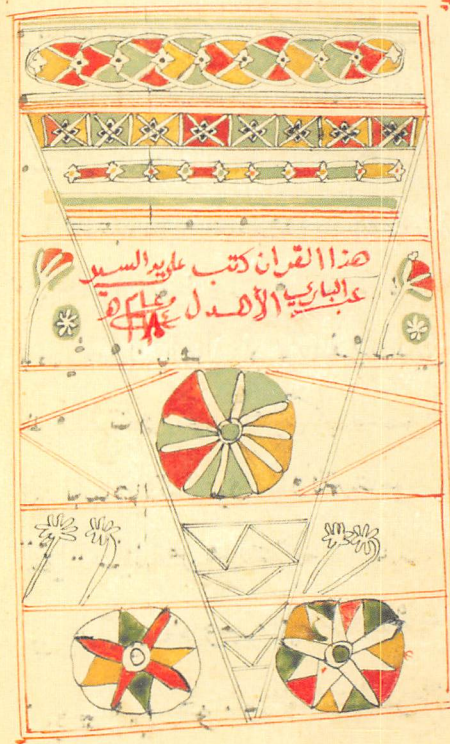 هذا القران كتب على يد السيد
عبد الباري الأهدل